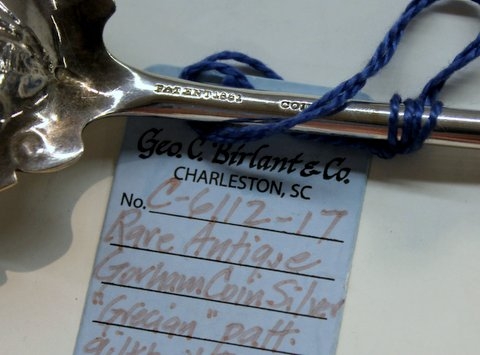 PATENT 1861 COI
Geo. C. Birlant & Co.
CHARLESTON, SC
No. C-6112-17
Rare Antique
Gorham Coin Silver
"Grecian" patt.
gilt